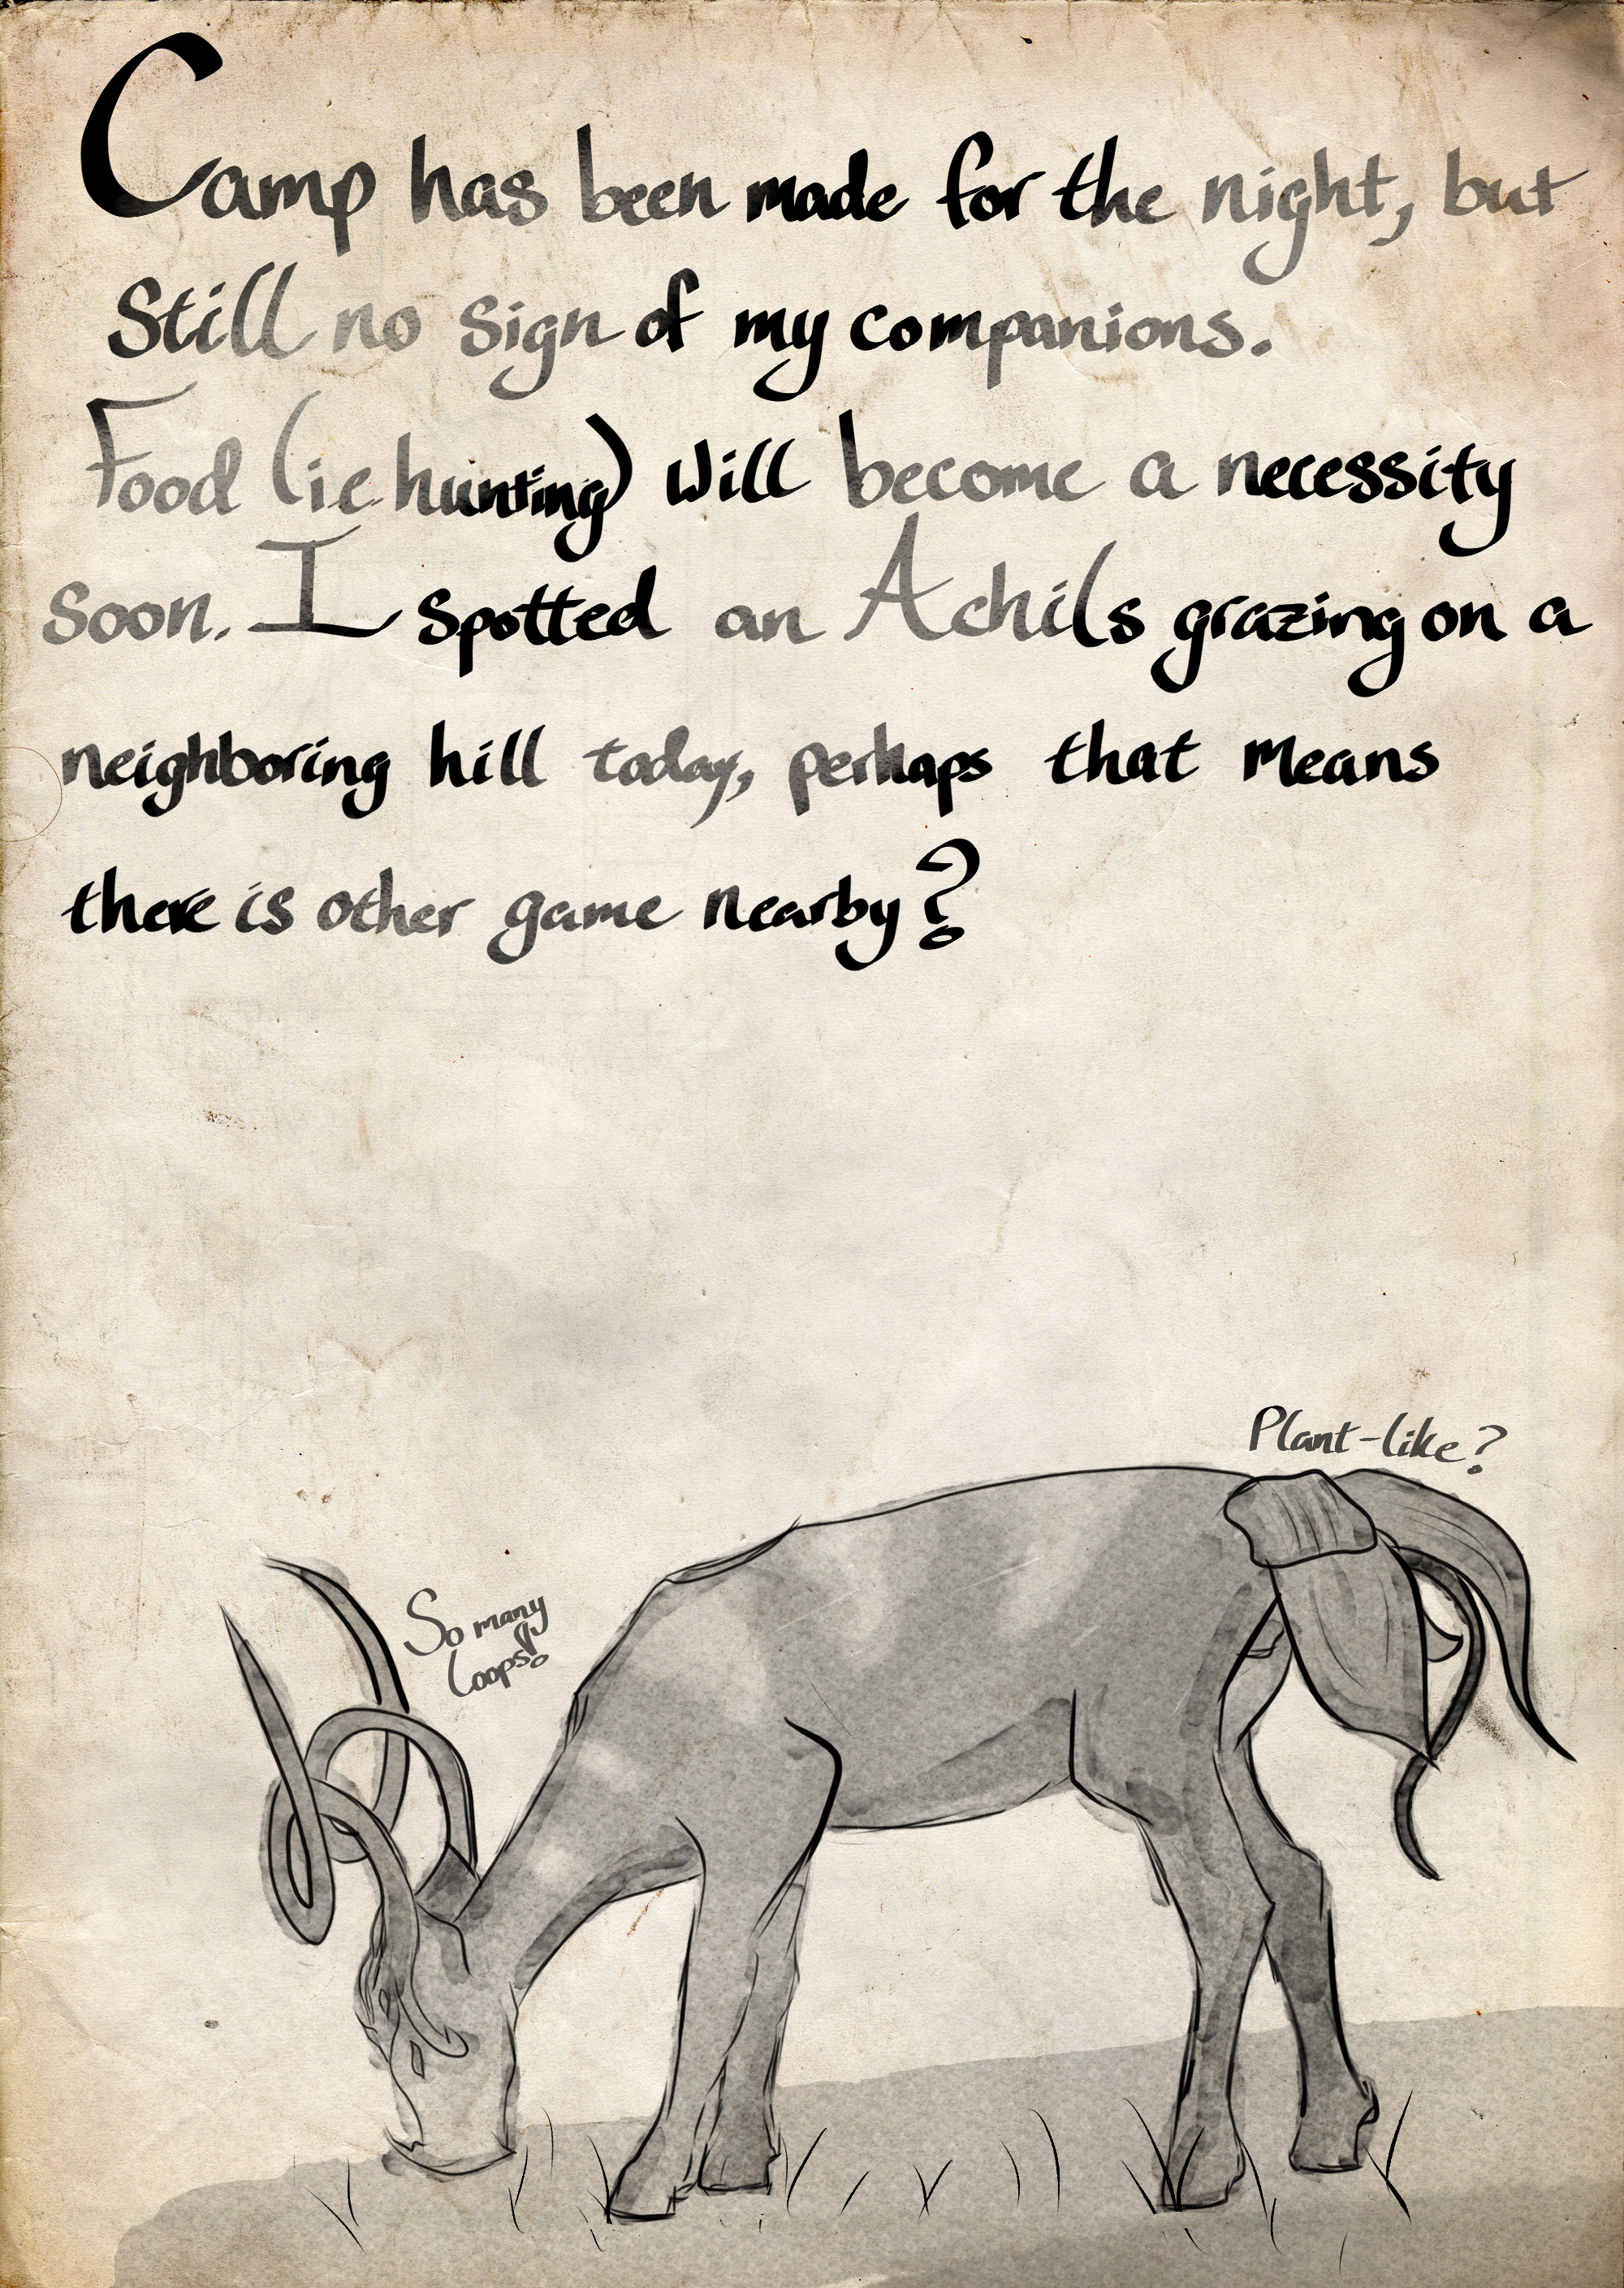 Camp has been made for the night, but
Still no sign of my companions.
Food (ie hunting) will become a necessity
soon. I spotted an Achils grazing on a
neighboring hill today, perhaps that means
there is other game nearby?
Plant-like?
So many
loops!